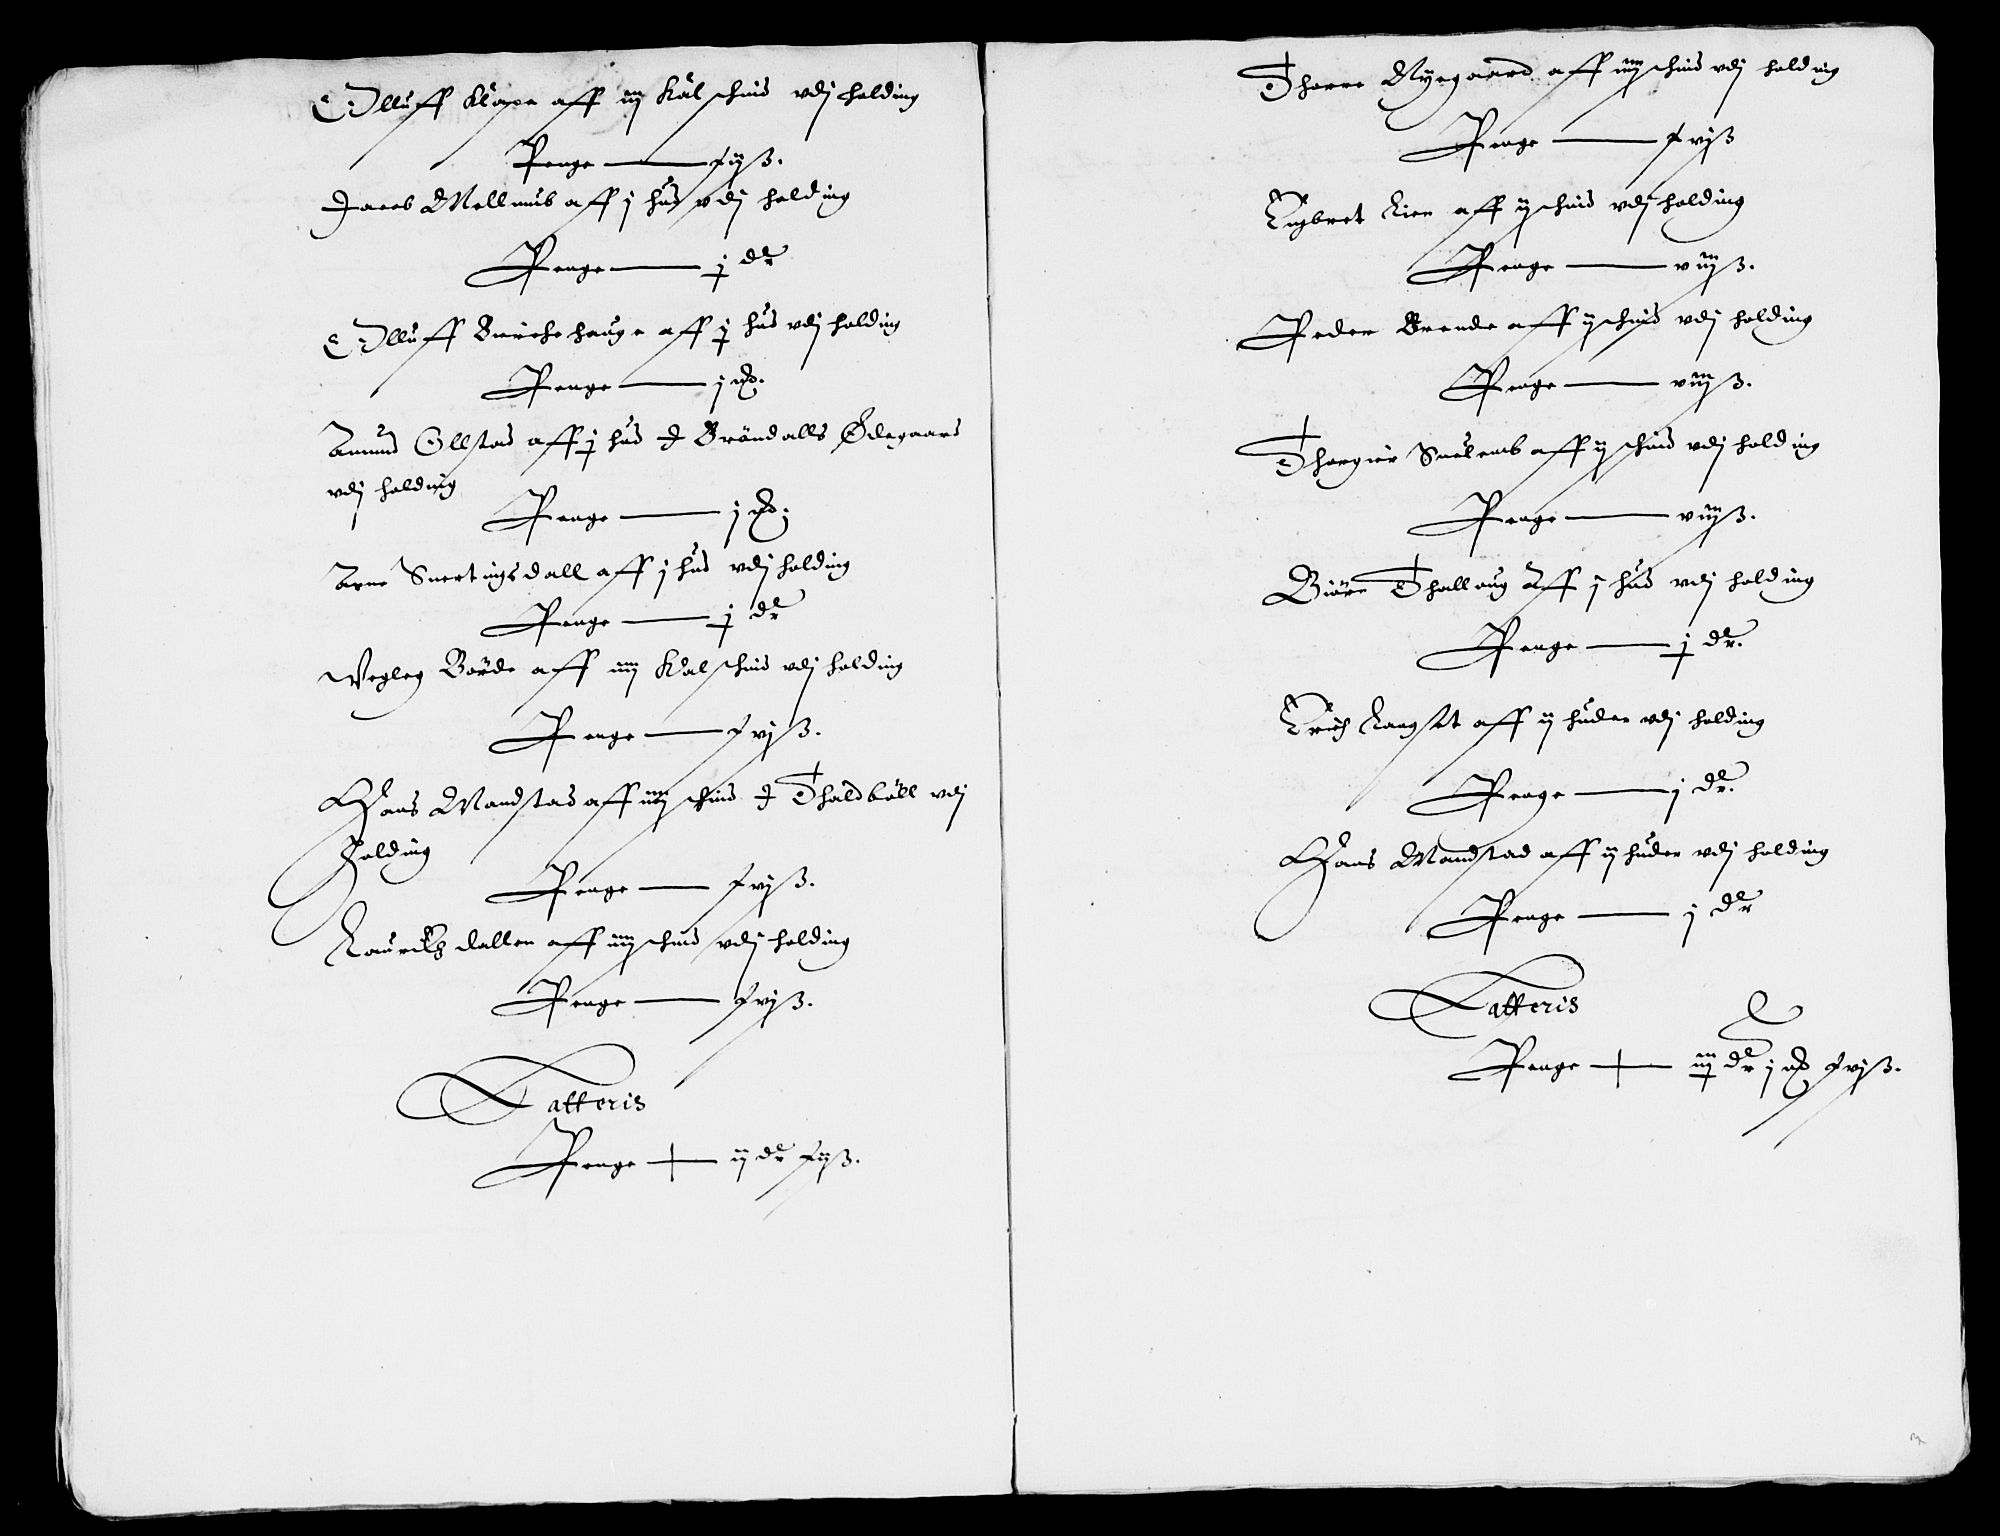 Olluff Klope aff iij Kalschind vdj holding
Penge — xijß.
Jacob Mellmub aff j hud vdj holding
Penge — j dr
Olluff Bierche hauge aff j hud vdj holding
Penge — j mk.
Amund Ollstad aff j hud J Bröndalls Ødegaard
vdj holding
Penge — j mk.
Arne Snertingsdall aff j hud vdj holding
Penge — j dr
Wegleg Börde aff iiij Kalschind vdj holding
Penge — xvjß.
Hans Mandstad aff iiij schind J Thaldböll vdj
Holding
Penge — xvjß.
Lauritz dallen aff iiij schind vdj holding
Penge — xvjß.
Latteris
Penge — ij dr xijß.
Thorre Nyegaard aff iiij schind vdj holding
Penge — xvjß
Engbret Lien aff ij schind vdj holding
Penge — viijß.
Peder Brende aff ij schind vdj holding
Penge — viijß.
Thorgier aff ij schind vdj holding
Penge — viijß.
Biörn Thalloug Aff j hud vdj holding
Penge — j dr.
Erich Langset aff ij huder vdj holding
Penge — j dr.
Hans Mandstad aff ij huder vdj holding
Penge — j dr
Latteris
Penge — iij dr j mk xvjß.